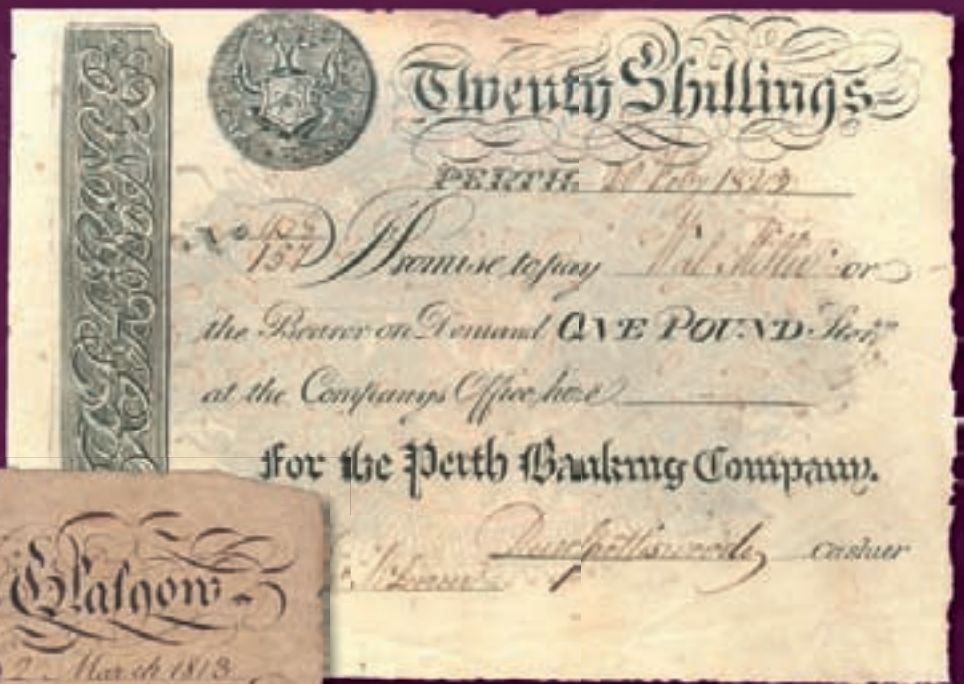 Twenty Shillings
PERTH, 1823
No 157 I Promise to pay or
the Bearer on Demand ONE POUND Sterg
at the Companys Office here
For the Perth Banking Company.
Cashier
Glasgow
2 March 1813